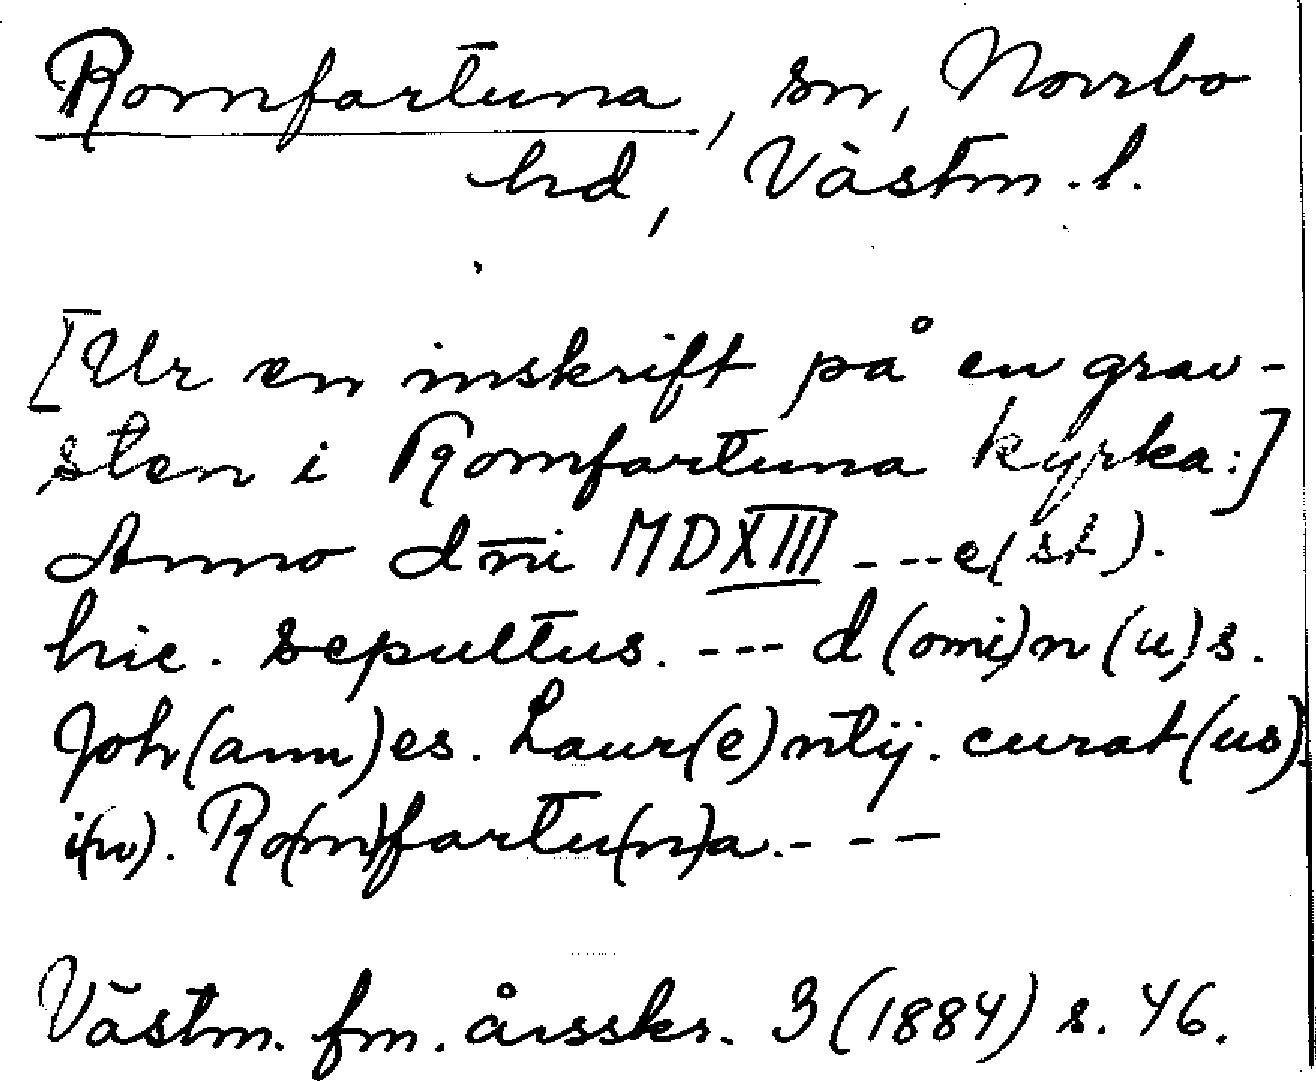 Romfartuna, sn, Norrbo
hd, Västm. l.
[Ur en inskrift på en grav-
sten i Romfartuna kyrka:]
Anno dn̄i MDXIII ---e(st).
hic. sepultus. --- d(omi)n(u)s.
Joh(ann)es. Laur(e)ntij. curat(us).
i(n). Ro(m)fartu(n)a.---
Västm. fm. årsskr. 3 (1884) s. 46.